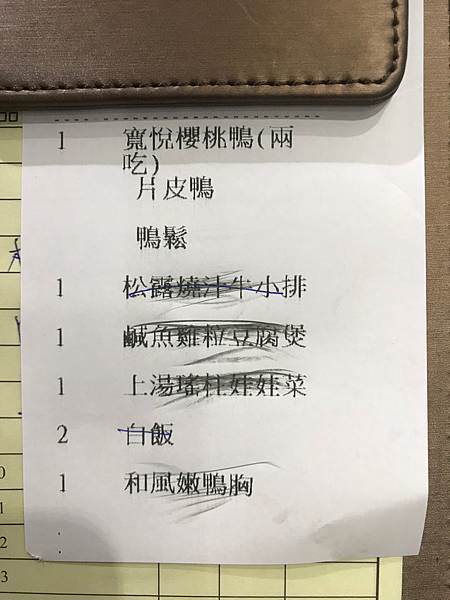 1 寬悅櫻桃鴨(兩
吃)
片皮鴨
鴨鬆
1 松露燒汁牛小排
1 鹹魚雞粒豆腐煲
1 上湯瑤柱娃娃菜
2 白飯
1 和風嫩鴨胸
0
1
2
3